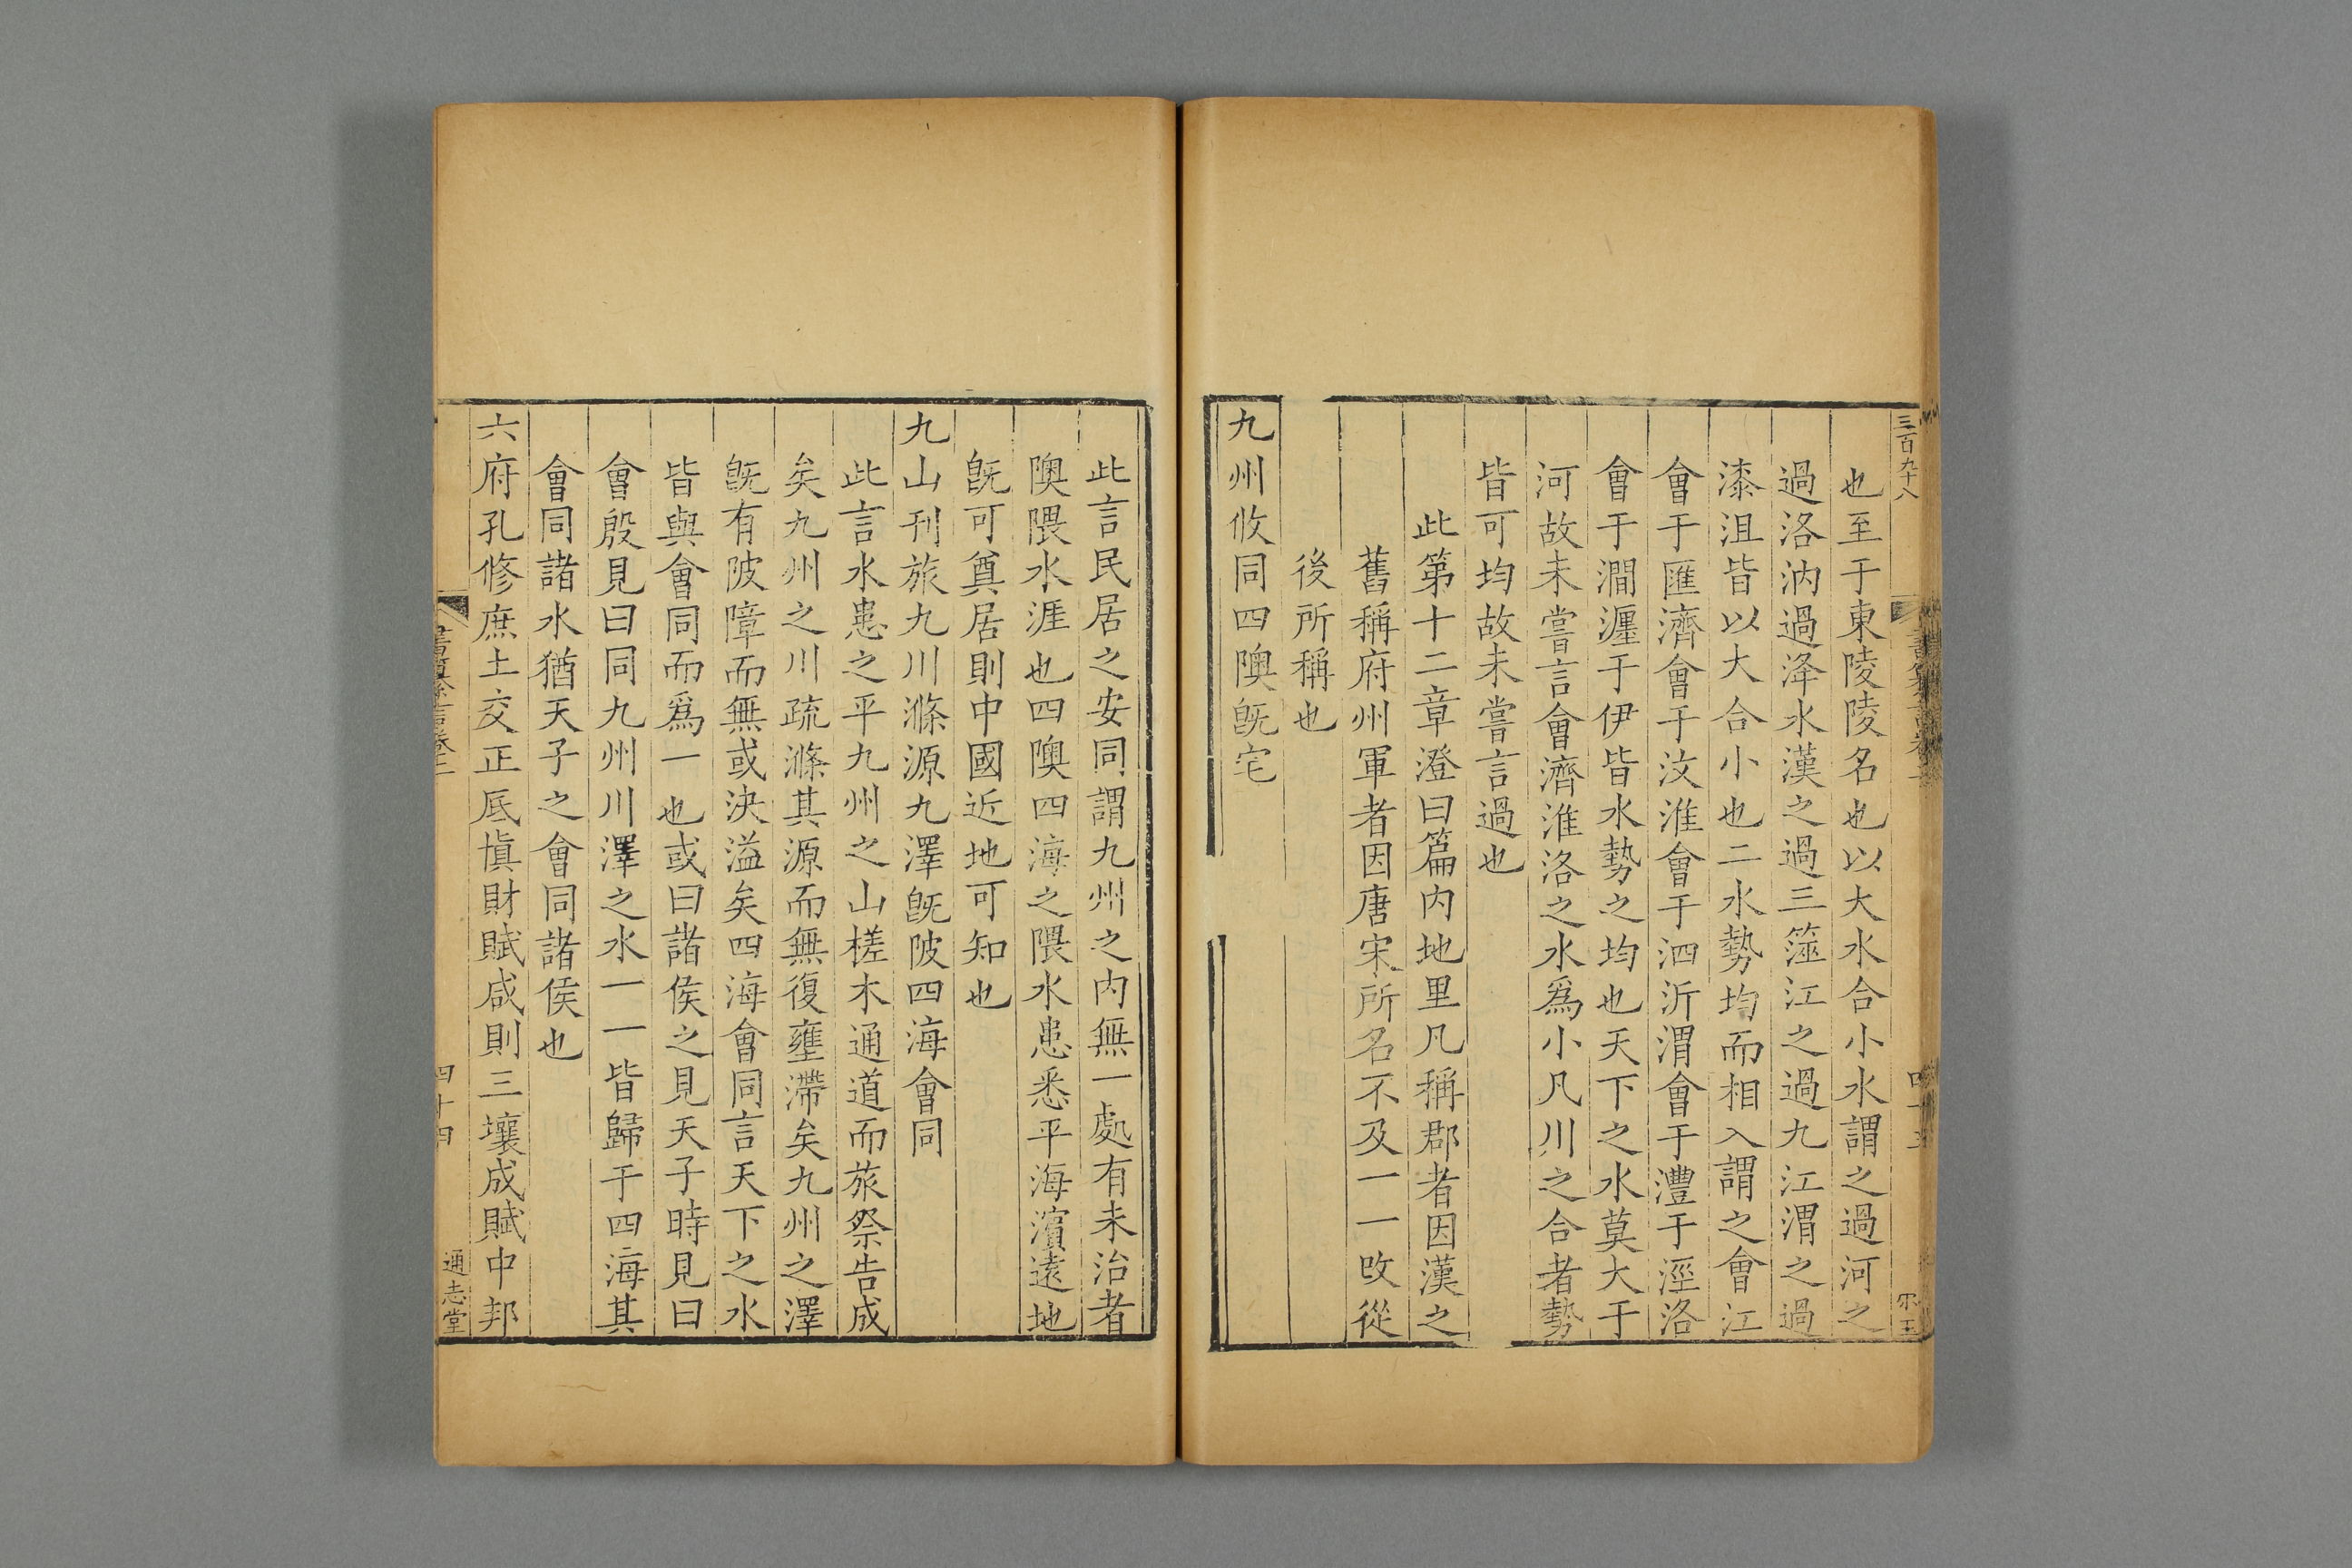 三百九十八
也至于東陵陵名也以大水合小水謂之過河之
過洛汭過洚水漢之過三澨江之過九江渭之過
漆沮皆以大合小也二水勢均而相入謂之會江
會于匯濟會于汶淮會于泗沂渭會于灃于涇洛
會于澗瀍于伊皆水勢之均也天下之水莫大于
河故未嘗言會濟淮洛之水爲小凡川之合者勢
皆可均故未嘗言過也
此第十二章澄曰篇内地里凡稱郡者因漢之
舊稱府州軍者因唐宋所名不及一一改從
後所稱也
九州攸同四隩旣宅
此言民居之安同謂九州之内無一處有未治者
隩隈水涯也四隩四海之隈水患悉平海濵遠地
旣可奠居則中國近地可知也
九山刋旅九川滌源九澤旣陂四海會同
此言水患之平九州之山槎木通道而旅祭告成
矣九州之川疏滌其源而無復壅滯矣九州之澤
旣有陂障而無或決溢矣四海會同言天下之水
皆與會同而爲一也或曰諸侯之見天子時見曰
會殷見曰同九州川澤之水一一皆歸于四海其
會同諸水猶天子之會同諸侯也
六府孔修庶土交正底愼財賦咸則三壤成賦中邦
四十四
通志堂